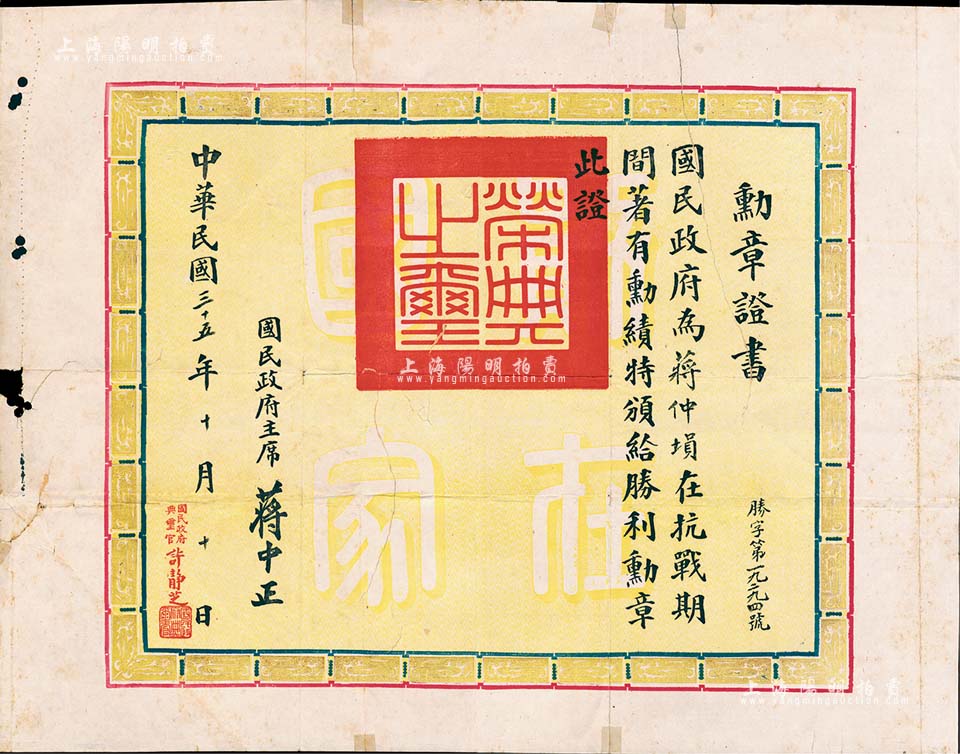 勳章證書
勝字第一九二九四號
國民政府為蔣仲塤在抗戰期
間著有勳績特頒給勝利勳章
此證
榮典
之璽
國民政府主席 蔣中正
中華民國三十五年十月十日
國民政府
典璽官 許靜芝
國
在
家
上海陽明拍賣
www.yangmingauction.com
上海陽明拍賣
www.yangmingauction.com
上海陽明拍賣
www.yangmingauction.com